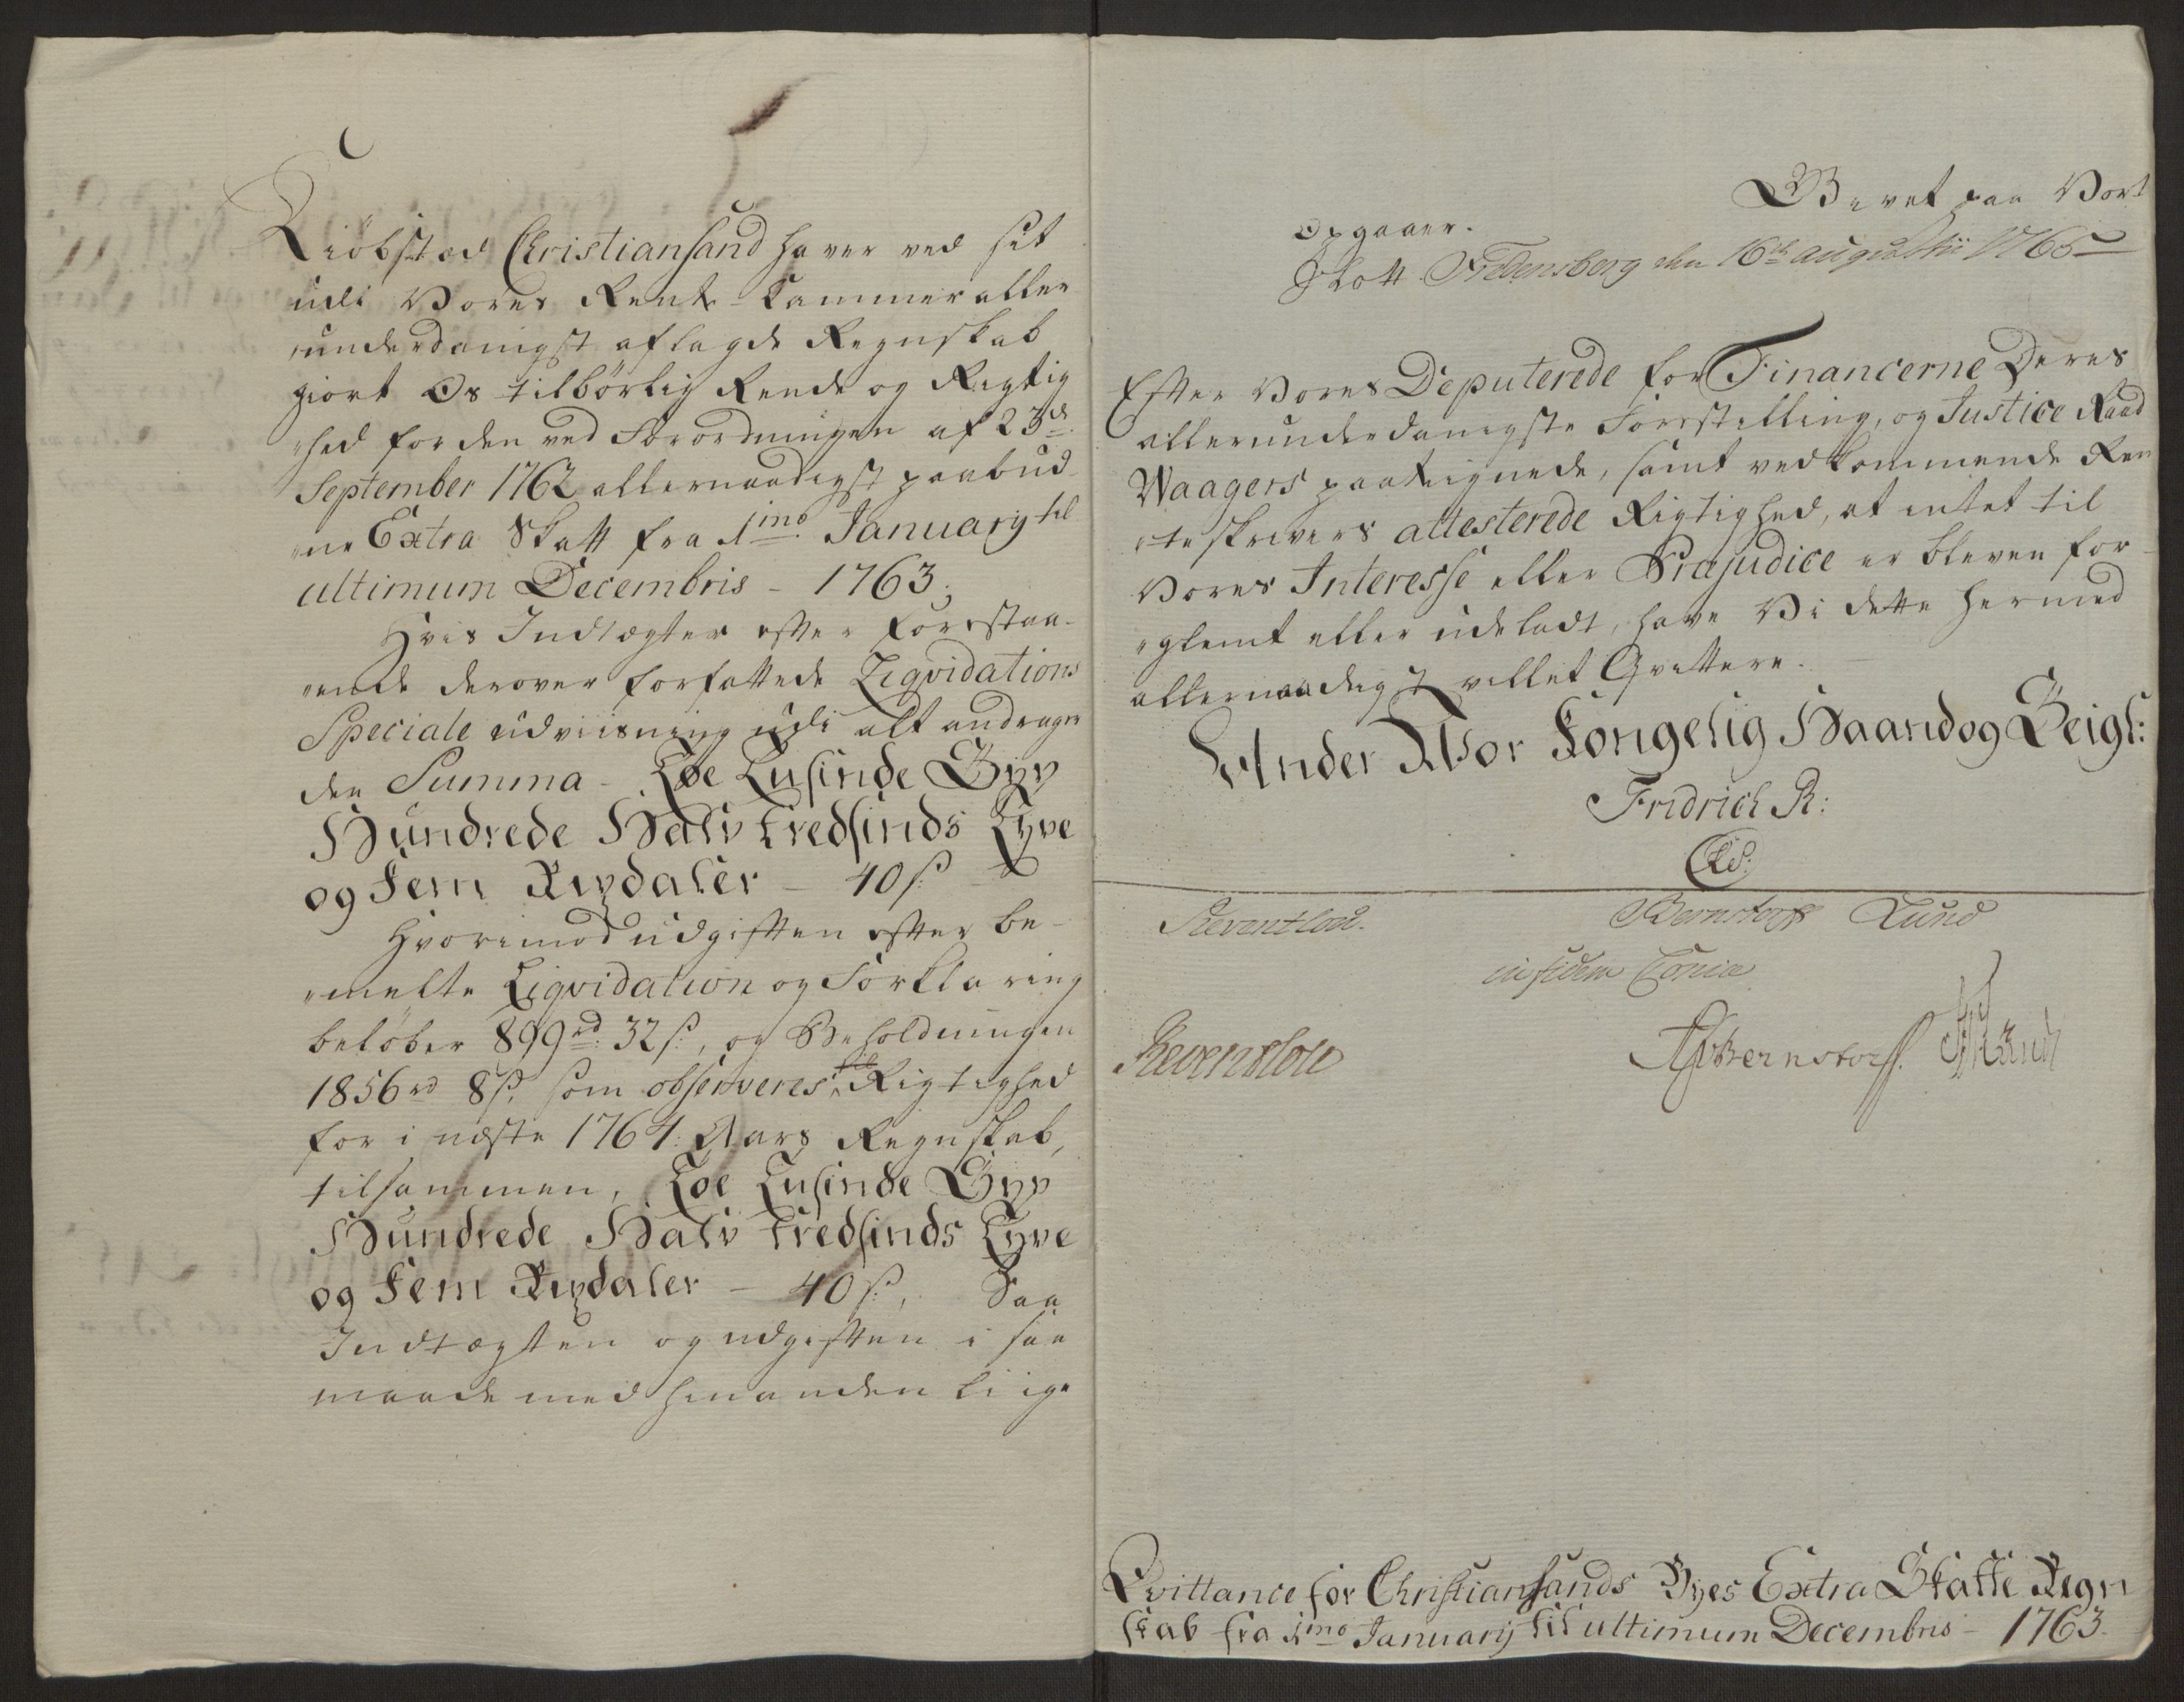 Kiöbsted Christiansand haver ved sit
udi Vores Rente-Kammer aller
„underdanigst aflagde Regnskab
giort Os tilbörlig Rende og Rigtig
„hed for den ved Forordningen af 23de
September 1762 allernaadigst paabud
„ne Extra Skatt fra 1mo January til
ultimum Decembris - 1763.
Hvis Indtægter efter forestaa-
„ende derover forfattede Liqvidations
Speciale udviisning udi alt andrager
den Summa - Toe Tusinde Syv
Hundrede Halv tredsinds Tyve
og Fem Rixdaler - 40 ß
Hvorimod udgiften efter be-
„melte Liqvidation og Forklaring
belöber 899rd: 32 ß, og Beholdningen
1856rd 8 ß, som observeres til Rigtighed
for i næste 1764 Aars Regnskab,
tilsammen, Toe Tusinde Syv
Hundrede Halv tredsinds Tyve
og Fem Rixdaler - 40 ß, Saa
Indtægten og udgiften i saa
maade med hinanden liige
opgaaer.
Givet paa Vort
Slott Fredensberg den 16de augustii 1765
Efter Vores Deputerede for Financerne Deres
allerunderdanigste Forestilling, og Justice Raad
Waagers paategnede, samt vedkommende Ren
„teskrivers attesterede Rigtighed, at intet til
Vores Interesse eller Præjudice er bleven for-
„glemt eller udeladt, have Vi dette hermed
allernaadigst villet Qvittere.
Under Vor Kongelig Haand og Zeigl:
Fridrich R:
Reventlow.
Bernstorff Lund
in fidem Copiæ
Reventlow
Bernstorff. Lund
Qvittance for Christiansands Byes Extra Skatte Regn
skab fra 1mo January til ultimum Decembris - 1763.